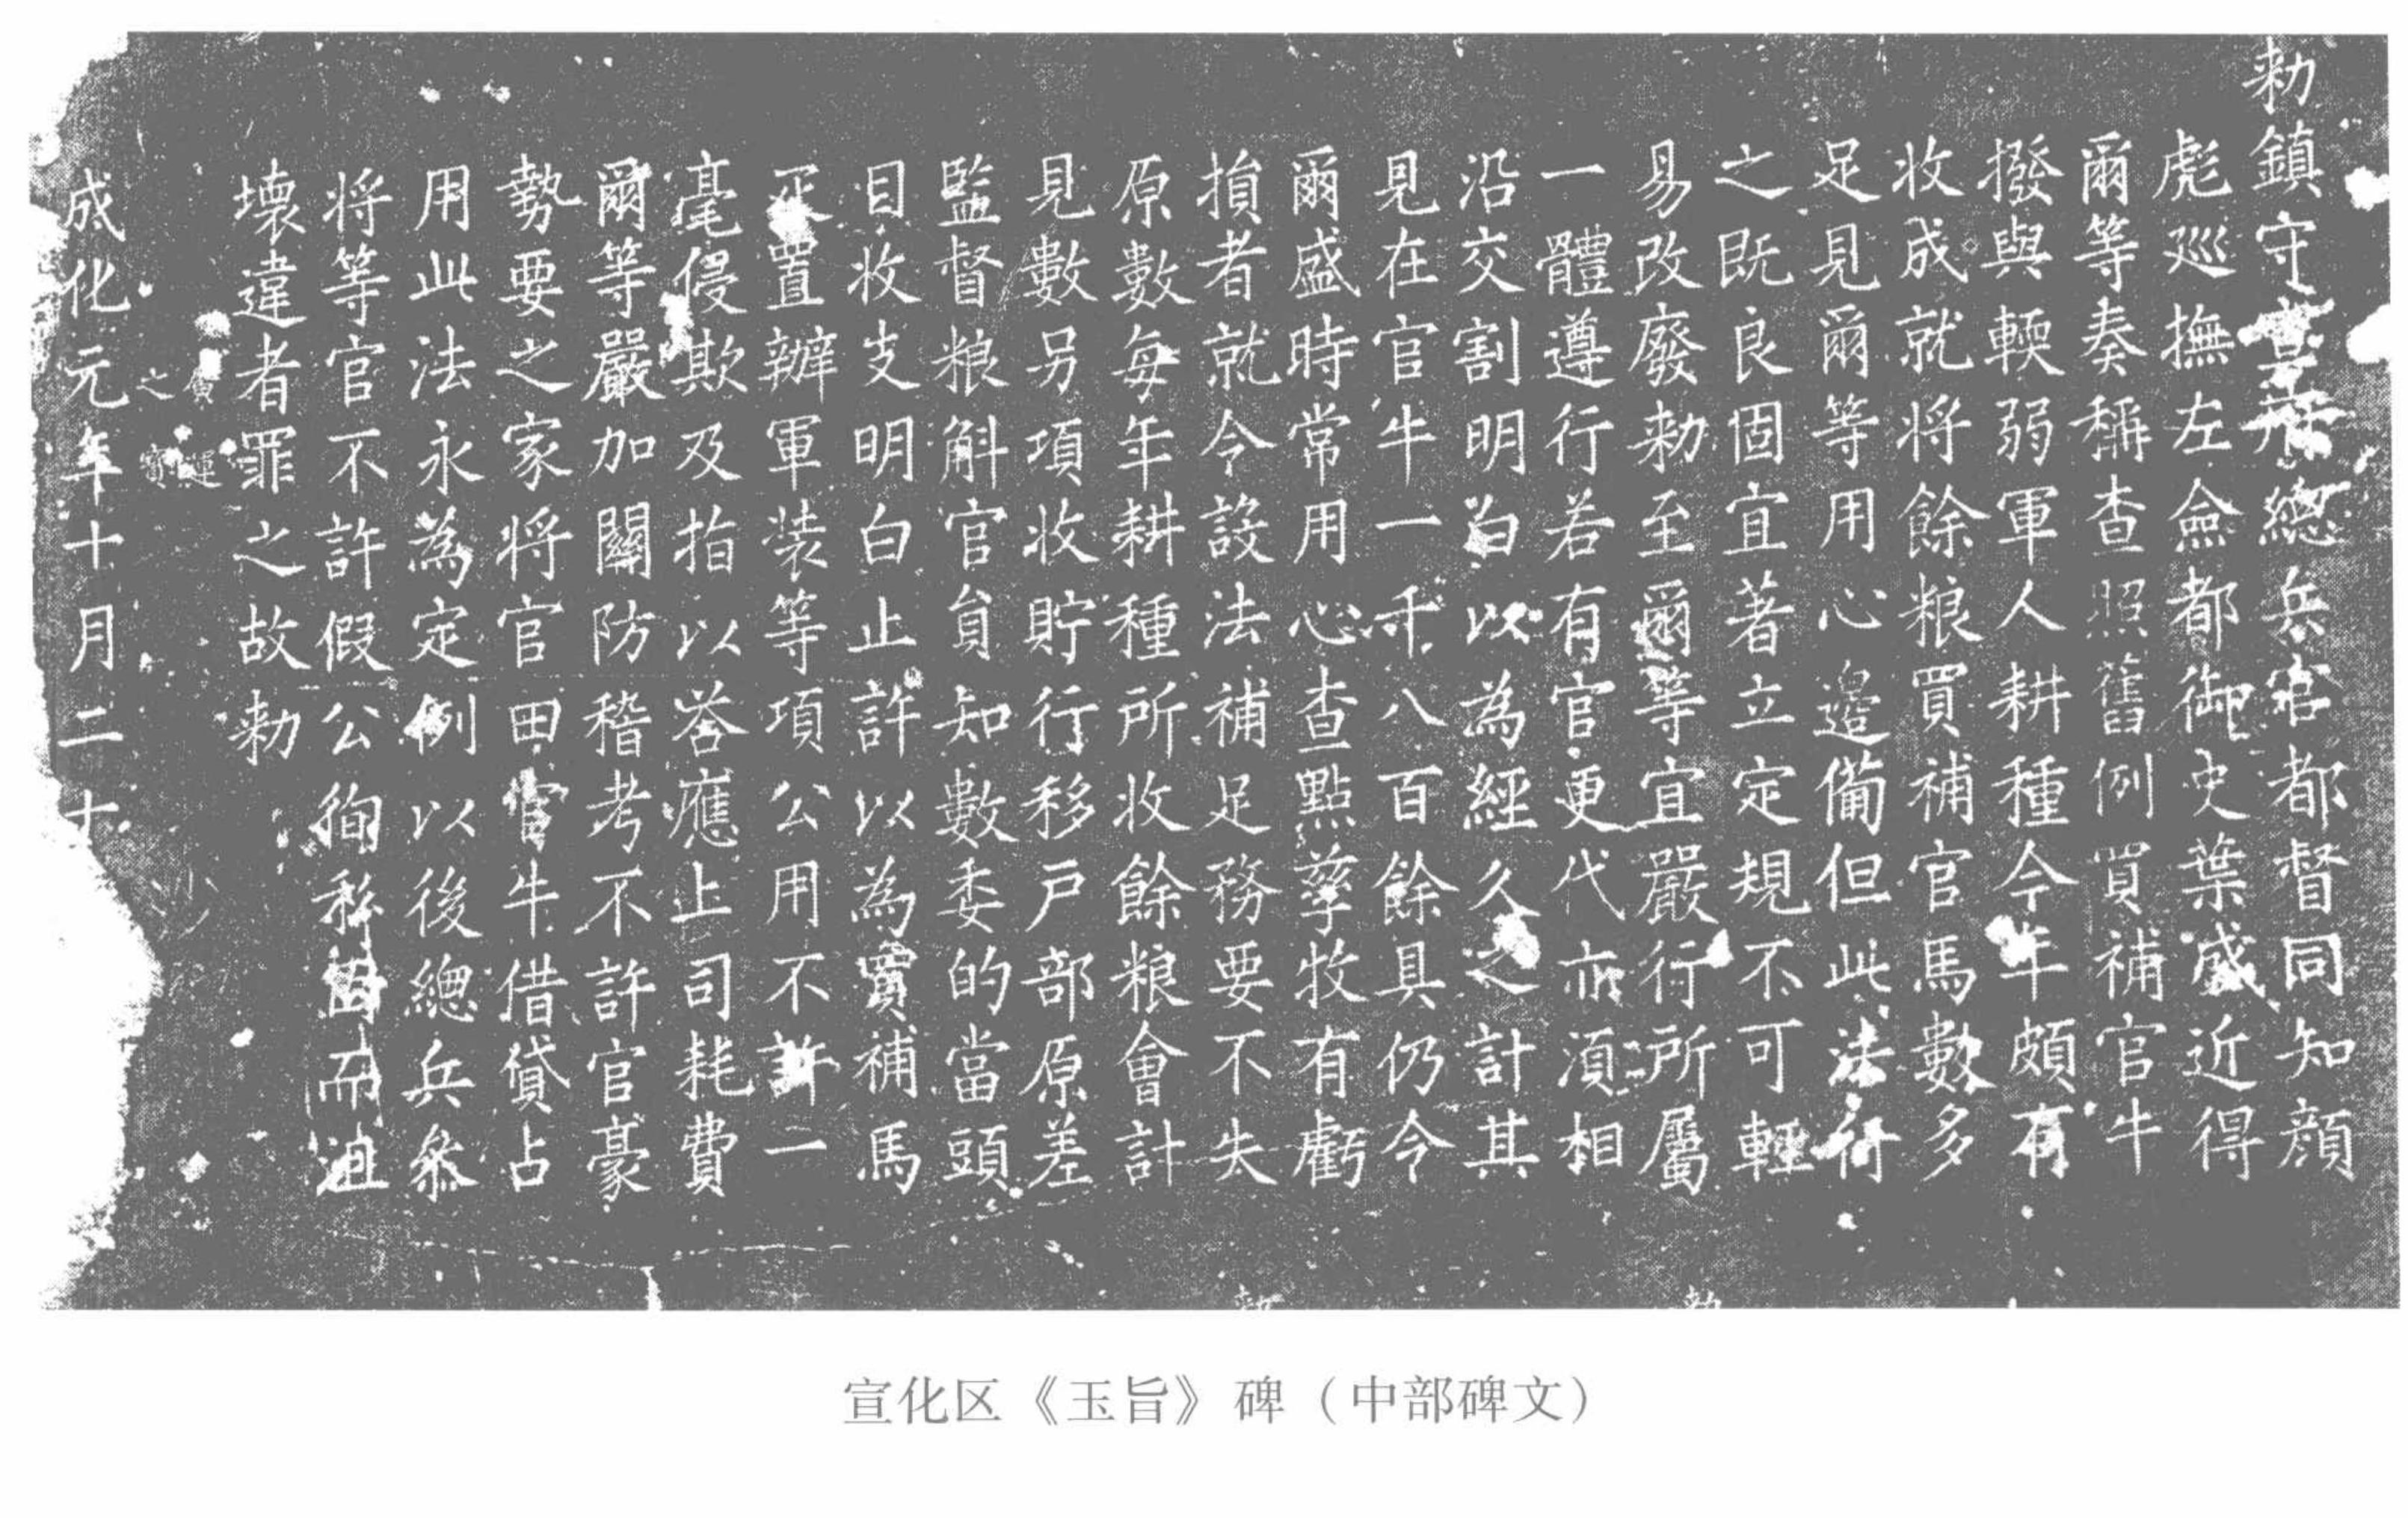 勅鎮守總兵官都督同知顔
彪巡撫左僉都御史葉盛近得
爾等奏稱查照舊例買補官牛
撥與輭弱軍人耕種今年頗有
收成就将餘粮買補官馬數多
足見爾等用心邉備但此法行
之既良固宜著立定規不可輕
易改廢勅至爾等宜嚴行所屬
一體遵行若有官更代亦湏相
沿交割明白以為經久之計其
見在官牛一千八百餘具仍令
爾盛時常用心查點孳牧有虧
損者就令設法補足務要不失
原數每年耕種所收餘粮會計
見數另項收貯行移戸部原差
監督粮斛官員知數委的當頭
目收支明白止許以為買補馬
疋置辦軍装等項公用不許一
毫侵欺及指以荅應上司耗費
爾等嚴加關防稽考不許官豪
勢要之家将官田官牛借貸占
用此法永為定例以後總兵叅
将等官不許假公徇私因而沮
壊違者罪之故勅
廣運
之寳
成化元年十月二十
宣化区《玉旨》碑（中部碑文）